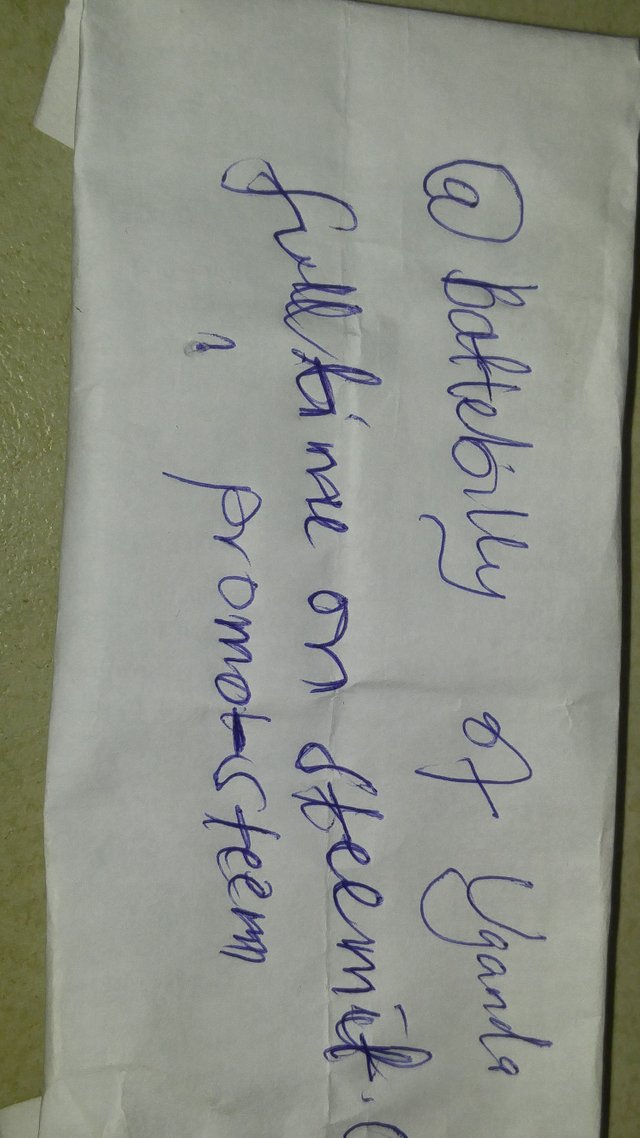 @battebilly of Uganda
full time on steemit. (
, promo-steem